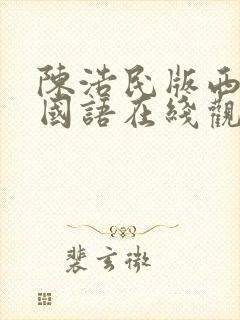 陳浩民版西
國語在綫觀
裴玄微